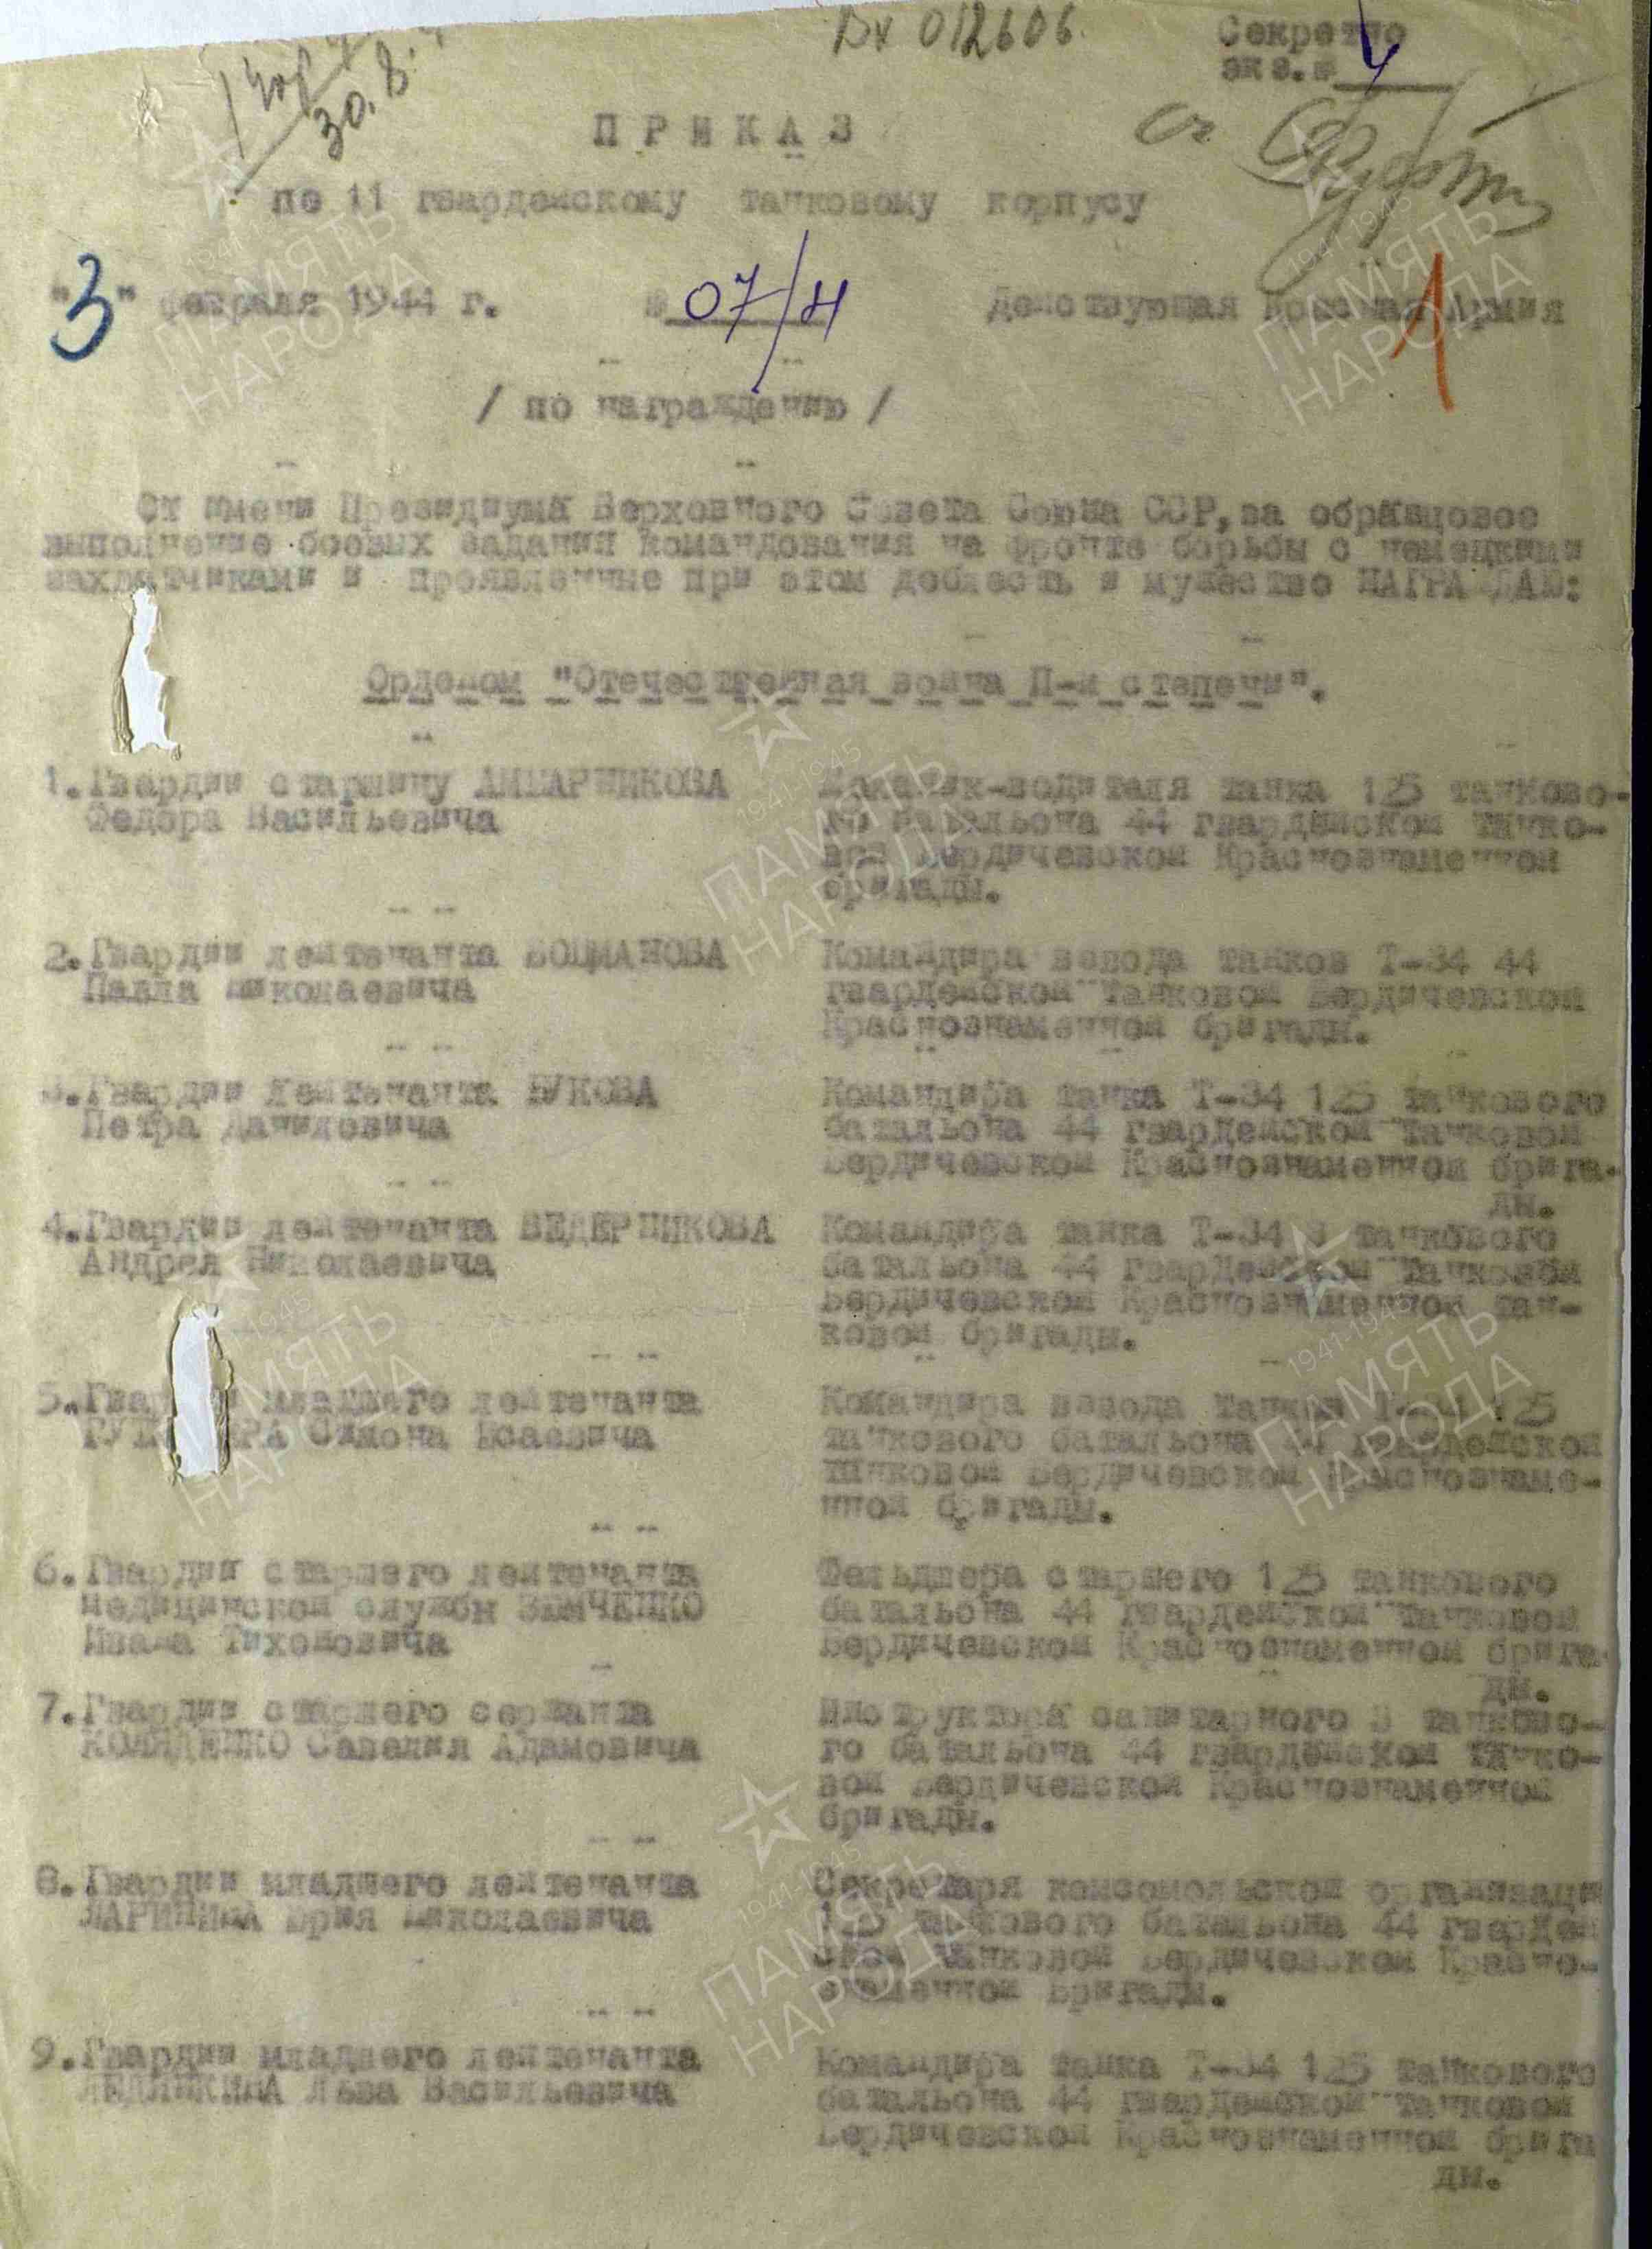 Вх 012606.
Секретно
экз.№ 4
30.8.
ПРИКАЗ
по 11 гвардейскому танковому корпусу
"3" февраля 1944 г. № 07/н Действующая Красная Армия
1
/ по награждению /
От имени Президиума Верховного Совета Союза ССР, за образцовое
выполнение боевых заданий командования на фронте борьбы с немецкими
захватчиками и проявленные при этом доблесть и мужество НАГРАЖДАЮ:
Орденом "Отечественная война II-й степени".
1. Гвардии старшину АМБАРНИКОВА
Федора Васильевича
Механик-водителя танка 125 танково-
го батальона 44 гвардейской танко-
вой Бердичевской Краснознаменной
бригады.
2. Гвардии лейтенанта БОЦМАНОВА
Павла Николаевича
Командира взвода танков Т-34 44
гвардейской танковой Бердичевской
Краснознаменной бригады.
3. Гвардии лейтенанта БУКОВА
Петра Даниловича
Командира танка Т-34 125 танкового
батальона 44 гвардейской танковой
Бердичевской Краснознаменной брига-
ды.
4. Гвардии лейтенанта ВЕДЕРНИКОВА
Андрея Николаевича
Командира танка Т-34 3 танкового
батальона 44 гвардейской танковой
Бердичевской Краснознаменной тан-
ковой бригады.
5. Гвардии младшего лейтенанта
Симона Исаевича
Командира взвода танков Т-34 125
танкового батальона 44 гвардейской
танковой Бердичевской Краснознаме-
нной бригады.
6. Гвардии старшего лейтенанта
медицинской службы ЗИНЧЕНКО
Ивана Тихоновича
Фельдшера старшего 125 танкового
батальона 44 гвардейской танковой
Бердичевской Краснознаменной брига-
ды.
7. Гвардии старшего сержанта
КОЛЯДЕНКО Савелия Адамовича
Инструктора санитарного 3 танково-
го батальона 44 гвардейской танко-
вой Бердичевской Краснознаменной
бригады.
8. Гвардии младшего лейтенанта
ЛАРИНИНА Юрия Николаевича
Секретаря комсомольской организаци
125 танкового батальона 44 гвардей
ской танковой Бердичевской Красно-
знаменной Бригады.
9. Гвардии младшего лейтенанта
Льва Васильевича
Командира танка Т-34 125 танкового
батальона 44 гвардейской танковой
Бердичевской Краснознаменной брига
ды.
ПАМЯТЬ НАРОДА
1941-1945